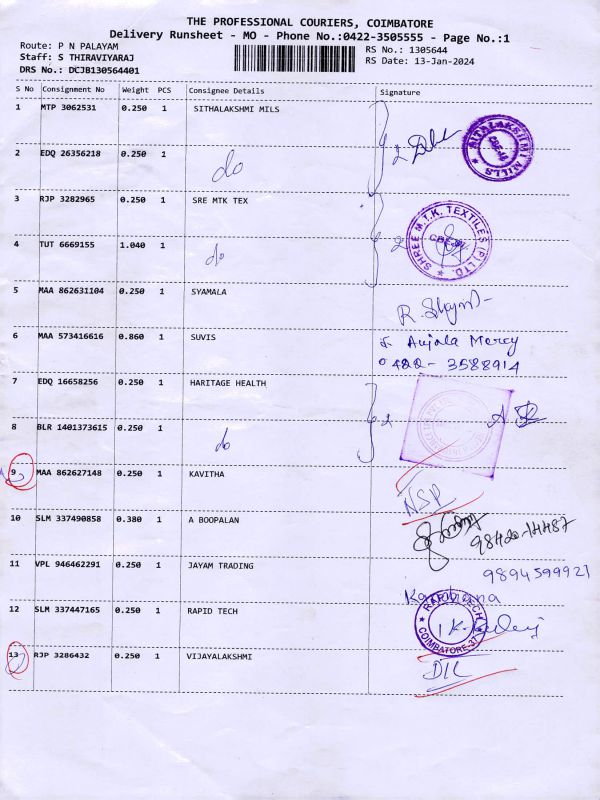 THE PROFESSIONAL COURIERS, COIMBATORE
Delivery Runsheet - MO - Phone No.:0422-3505555 - Page No.:1
Route: P N PALAYAM RS No.: 1305644
Staff: S THIRAVIYARAJ RS Date: 13-Jan-2024
DRS No.: DCJB130564401
S No Consignment No Weight PCS Consignee Details Signature
1 MTP 3062531 0.250 1 SITHALAKSHMI MILS 2
2 EDQ 26356218 0.250 1 do
3 RJP 3282965 0.250 1 SRE MTK TEX 2 SHREE M.T.K. TEXTILES (P) LTD.
4 TUT 6669155 1.040 1 do
5 MAA 862631104 0.250 1 SYAMALA
6 MAA 573416616 0.860 1 SUVIS Anjala Mercy
0422- 3588914
7 EDQ 16658256 0.250 1 HARITAGE HEALTH
8 BLR 1401373615 0.250 1 do
9 MAA 862627148 0.250 1 KAVITHA NSP
10 SLM 337490858 0.380 1 A BOOPALAN 98420-14487
11 VPL 946462291 0.250 1 JAYAM TRADING 9894599921
12 SLM 337447165 0.250 1 RAPID TECH RAPID TECH COIMBATORE-37
13 RJP 3286432 0.250 1 VIJAYALAKSHMI DIL